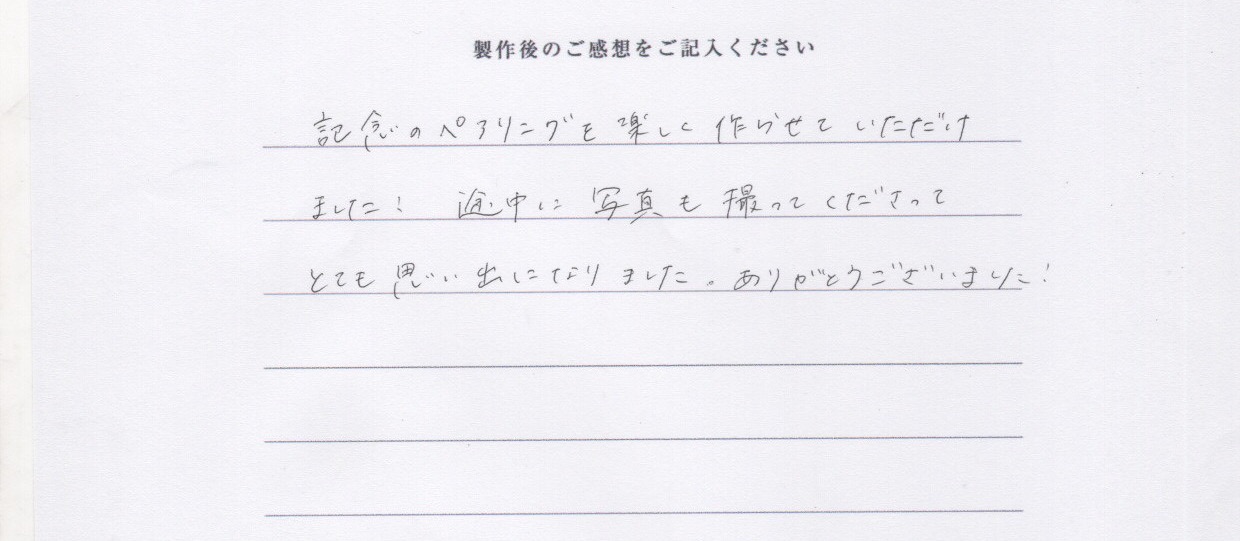 製作後のご感想をご記入ください
記念のペアリングを楽しく作らせていただけ
ました! 途中に写真も撮ってくださって
とても思い出になりました。ありがとうございました!